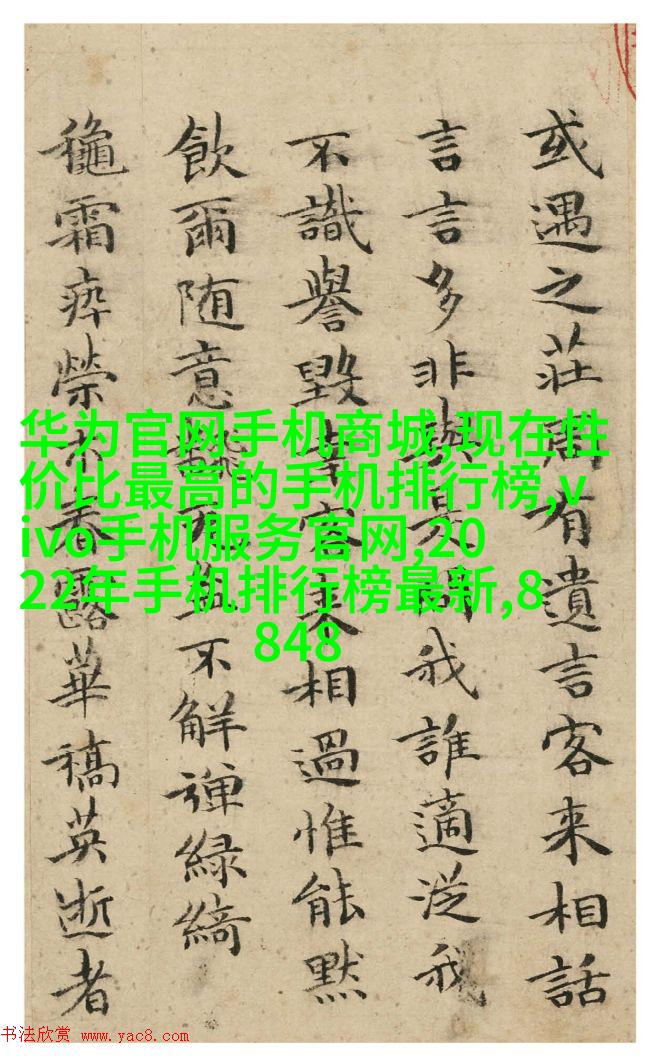 或遇之莊有遺言客来相話
言言多非是我誰適從我
不識譽毀客来相過惟能默
飲爾随意不解弹綠綺
龝霜瘁榮木香露華稿英逝者
华为官网手机商城,现在性
价比最高的手机排行榜,v
ivo手机服务官网,20
22年手机排行榜最新,8
848
书法欣赏 www.yac8.com